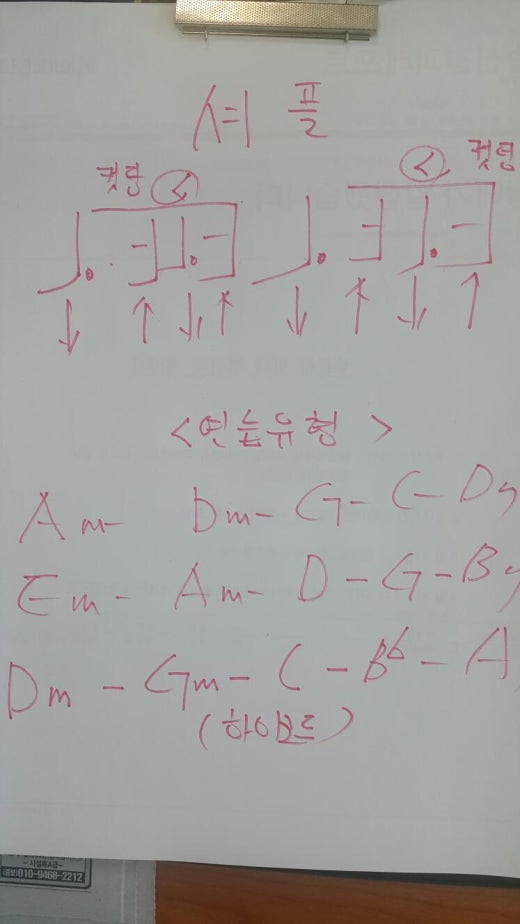 셔플
컷팅 <
< 컷팅
<연습유형>
Am- Dm- G- C- D
Em- Am- D - G - B
Dm - Gm - C - Bb - A
(하이코드)
010-9468-2212